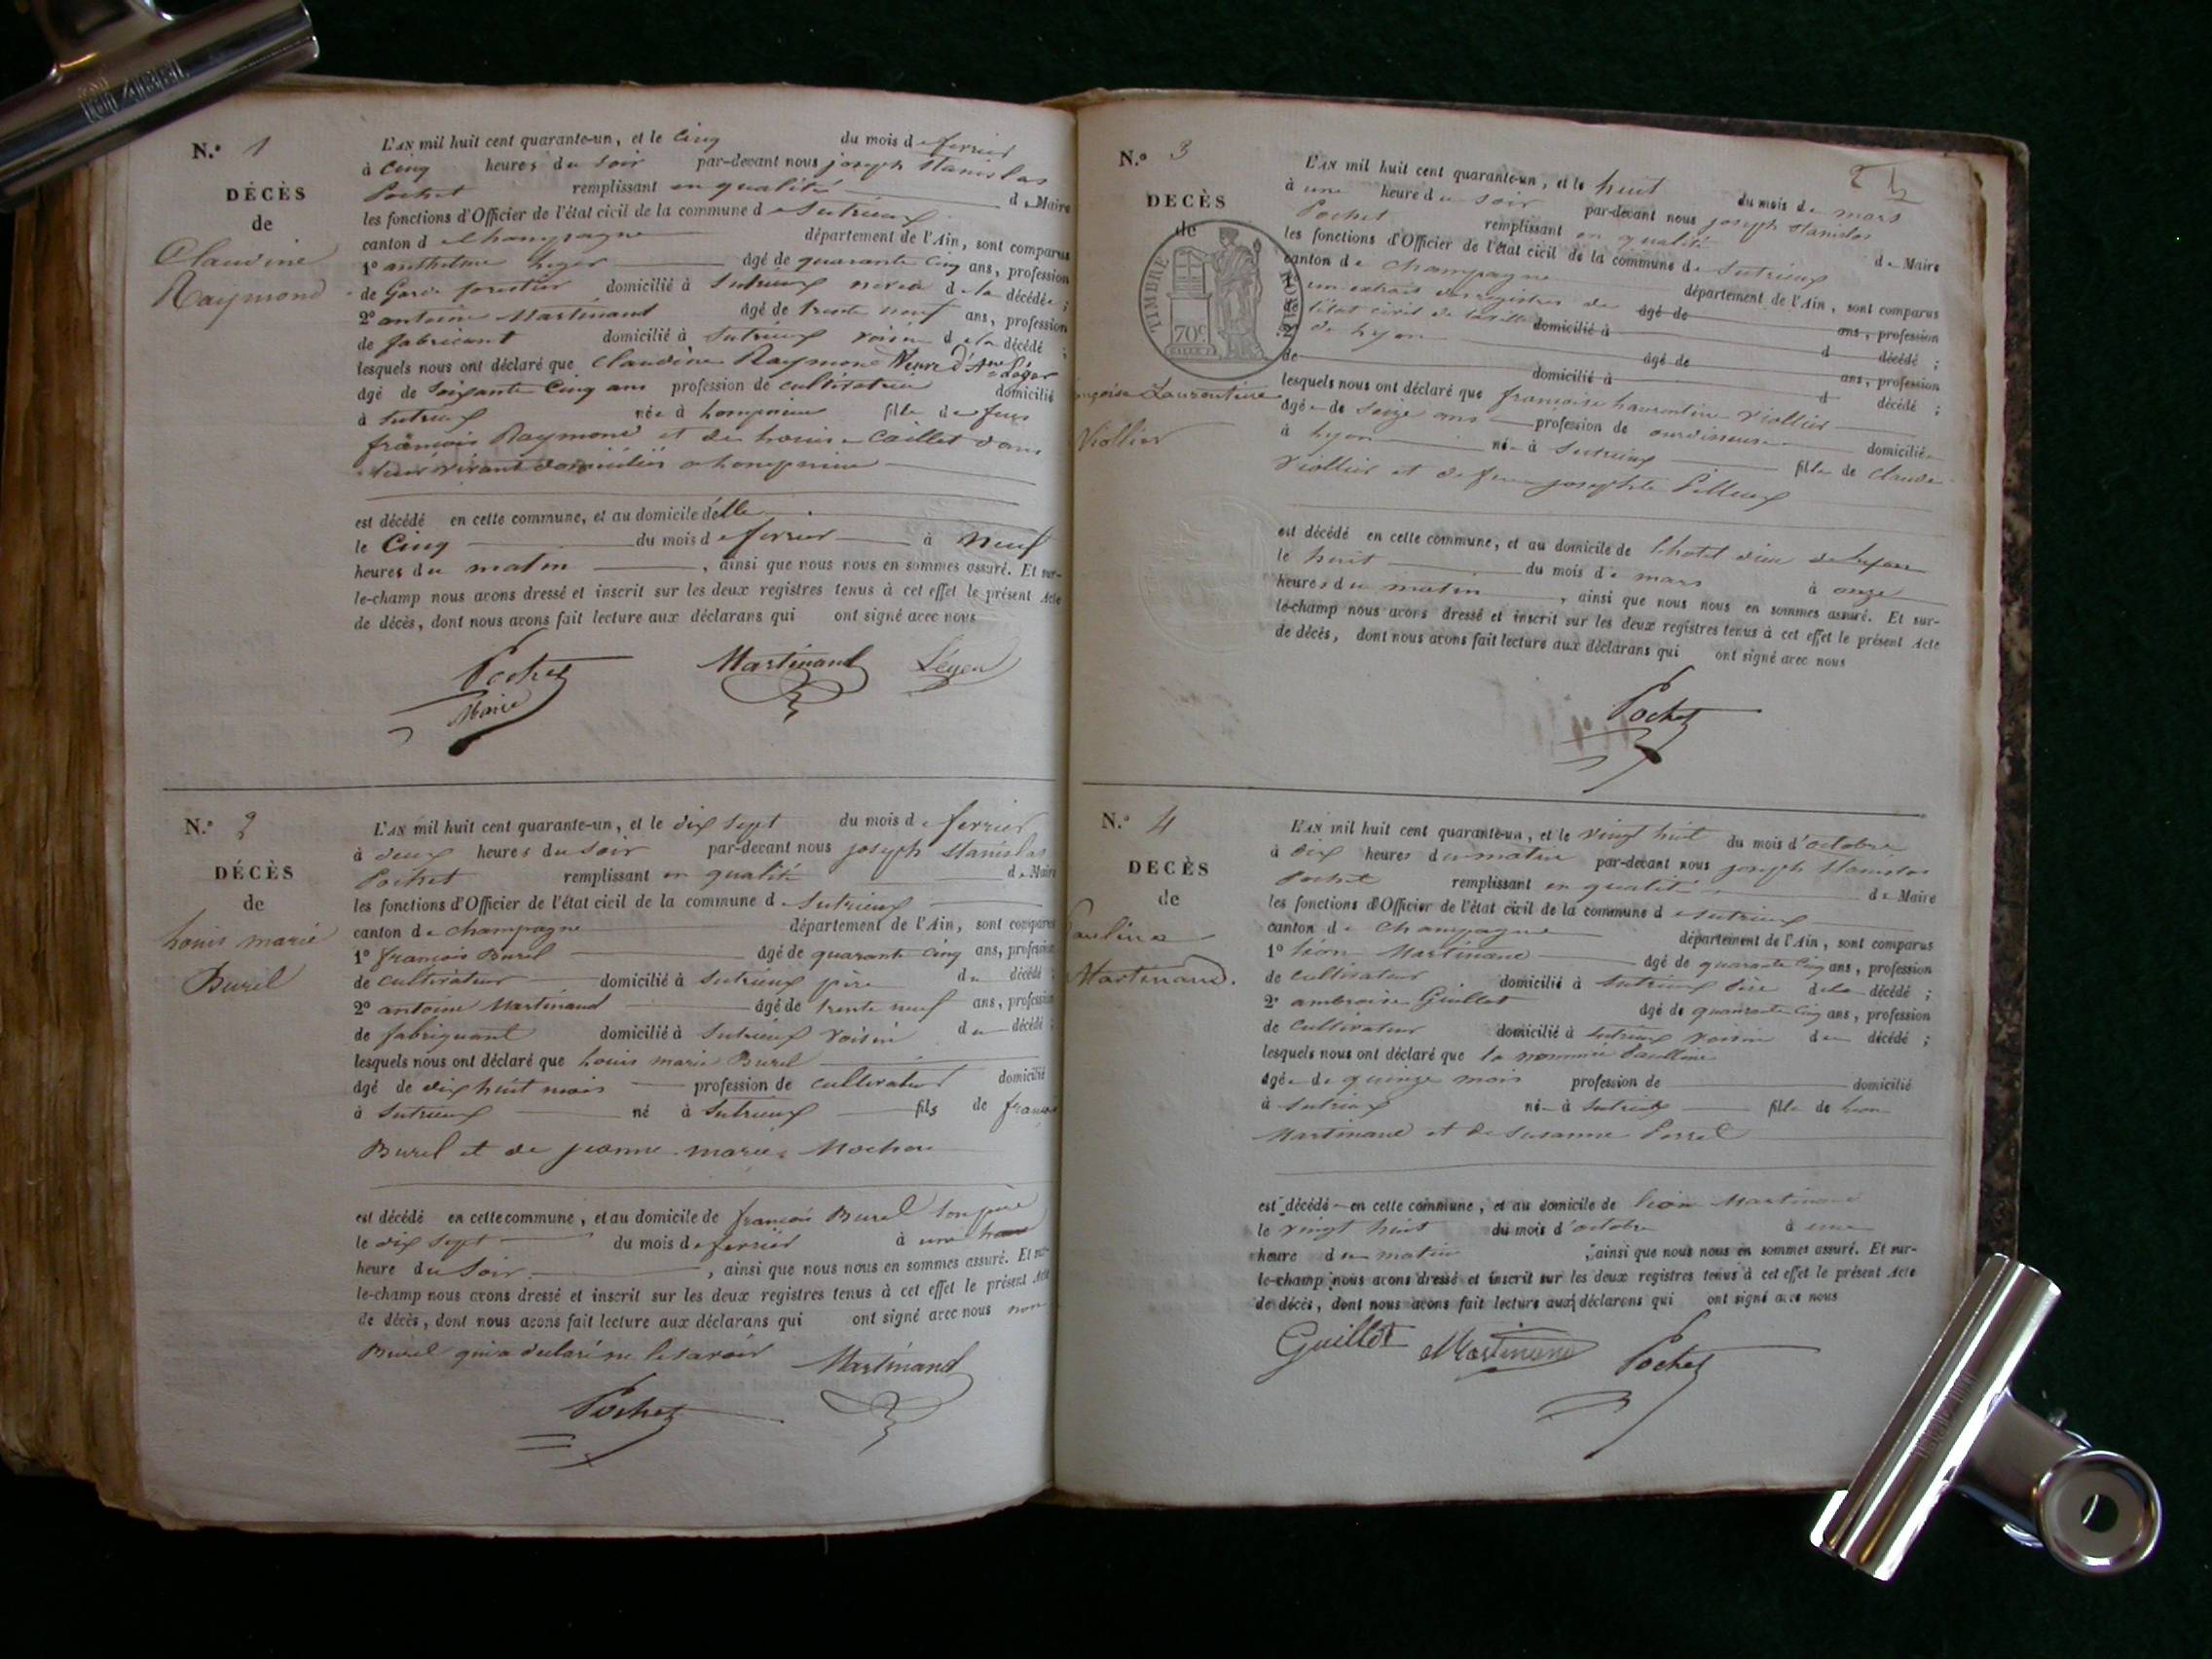 N.° 1
DÉCÈS
de
Claudine
Raymond
L'AN mil huit cent quarante-un, et le Cinq du mois de fevrier
à Cinq heures du soir par-devant nous joseph Stanislas
Pochet remplissant en qualité de Maire
les fonctions d'Officier de l'état civil de la commune de Sutrieux
canton de Champagne département de l'Ain, sont comparus
1° anthelme leger âgé de quarante Cinq ans, profession
de Garde forestier domicilié à Sutrieux neveu de la décédée ;
2° antoine Martinand âgé de trente neuf ans, profession
de fabricant domicilié à Sutrieux voisin de la décédé ;
lesquels nous ont déclaré que Claudine Raymond Veuve d'Ame Léger
âgé de Soixante Cinq ans profession de cultivatrice domicilié
à Sutrieux née à fille de feus
françois Raymond et de Louise Caillet
vivant domiciliés a
est décédé en cette commune, et au domicile d'elle
le Cinq du mois de fevrier à Neuf
heures du matin , ainsi que nous nous en sommes assuré. Et sur-
le-champ nous avons dressé et inscrit sur les deux registres tenus à cet effet le présent Acte
de décès, dont nous avons fait lecture aux déclarans qui ont signé avec nous
Pochet Martinand Léger
Maire
N.° 2
DÉCÈS
de
Louis marie
Burel
L'AN mil huit cent quarante-un, et le dix Sept du mois de fevrier
à deux heures du Soir par-devant nous joseph Stanislas
Pochet remplissant en qualité de Maire
les fonctions d'Officier de l'état civil de la commune de Sutrieux
canton de champagne département de l'Ain, sont comparus
1° françois Burel âgé de quarante Cinq ans, profession
de cultivateur domicilié à Sutrieux père du décédé ;
2° antoine Martinand âgé de trente neuf ans, profession
de fabriquant domicilié à Sutrieux voisin du décédé ;
lesquels nous ont déclaré que Louis marie Burel
âgé de dix huit mois profession de cultivateur domicilié
à Sutrieux né à Sutrieux fils de françois
Burel et de jeanne marie Mochon
est décédé en cette commune, et au domicile de françois Burel Son père
le dix Sept du mois de fevrier à une
heure du Soir , ainsi que nous nous en sommes assuré. Et sur-
le-champ nous avons dressé et inscrit sur les deux registres tenus à cet effet le présent Acte
de décès, dont nous avons fait lecture aux déclarans qui ont signé avec nous non
Burel qui a déclaré ne le savoir Martinand
Pochet
N.° 3
DECÈS
de
TIMBRE ROYAL
70c
Laurentine
Viollier
L'AN mil huit cent quarante-un, et le huit du mois de mars
à une heure du soir par-devant nous joseph Stanislas
Pochet remplissant en qualité de Maire
les fonctions d'Officier de l'état civil de la commune de Sutrieux
canton de Champagne département de l'Ain, sont comparus
1° un extrait des registres de âgé de ans, profession
de l'état civil de la ville domicilié à d décédé ;
2° de Lyon âgé de ans, profession
de domicilié à d décédé ;
lesquels nous ont déclaré que françoise Laurentine Viollier
âgée de Seize ans profession de ourdisseuse domiciliée
à Lyon née à Sutrieux fille de Claude
Viollier et de feue josephte Pilleux
est décédé en cette commune, et au domicile de l'hotel dieu de Lyon
le huit du mois de mars à onze
heures du matin , ainsi que nous nous en sommes assuré. Et sur-
le-champ nous avons dressé et inscrit sur les deux registres tenus à cet effet le présent Acte
de décès, dont nous avons fait lecture aux déclarans qui ont signé avec nous
Pochet
N.° 4
DECÈS
de
Pauline
Martinand.
L'AN mil huit cent quarante-un, et le vingt huit du mois d'octobre
à dix heures du matin par-devant nous joseph Stanislas
Pochet remplissant en qualité de Maire
les fonctions d'Officier de l'état civil de la commune de Sutrieux
canton de Champagne département de l'Ain, sont comparus
1° Léon Martinand âgé de quarante Cinq ans, profession
de Cultivateur domicilié à Sutrieux de la décédé ;
2° ambroise Guillot âgé de quarante Cinq ans, profession
de Cultivateur domicilié à Sutrieux voisin du décédé ;
lesquels nous ont déclaré que la nommée Paulline
âgée de quinze mois profession de domicilié
à Sutrieux née à Sutrieux fille de Leon
Martinand et de Susanne
est décédée en cette commune, et au domicile de Léon Martinand
le vingt huit du mois d'octobre à une
heure du matin , ainsi que nous nous en sommes assuré. Et sur-
le-champ nous avons dressé et inscrit sur les deux registres tenus à cet effet le présent Acte
de décès, dont nous avons fait lecture aux déclarans qui ont signé avec nous
Guillot Martinand Pochet